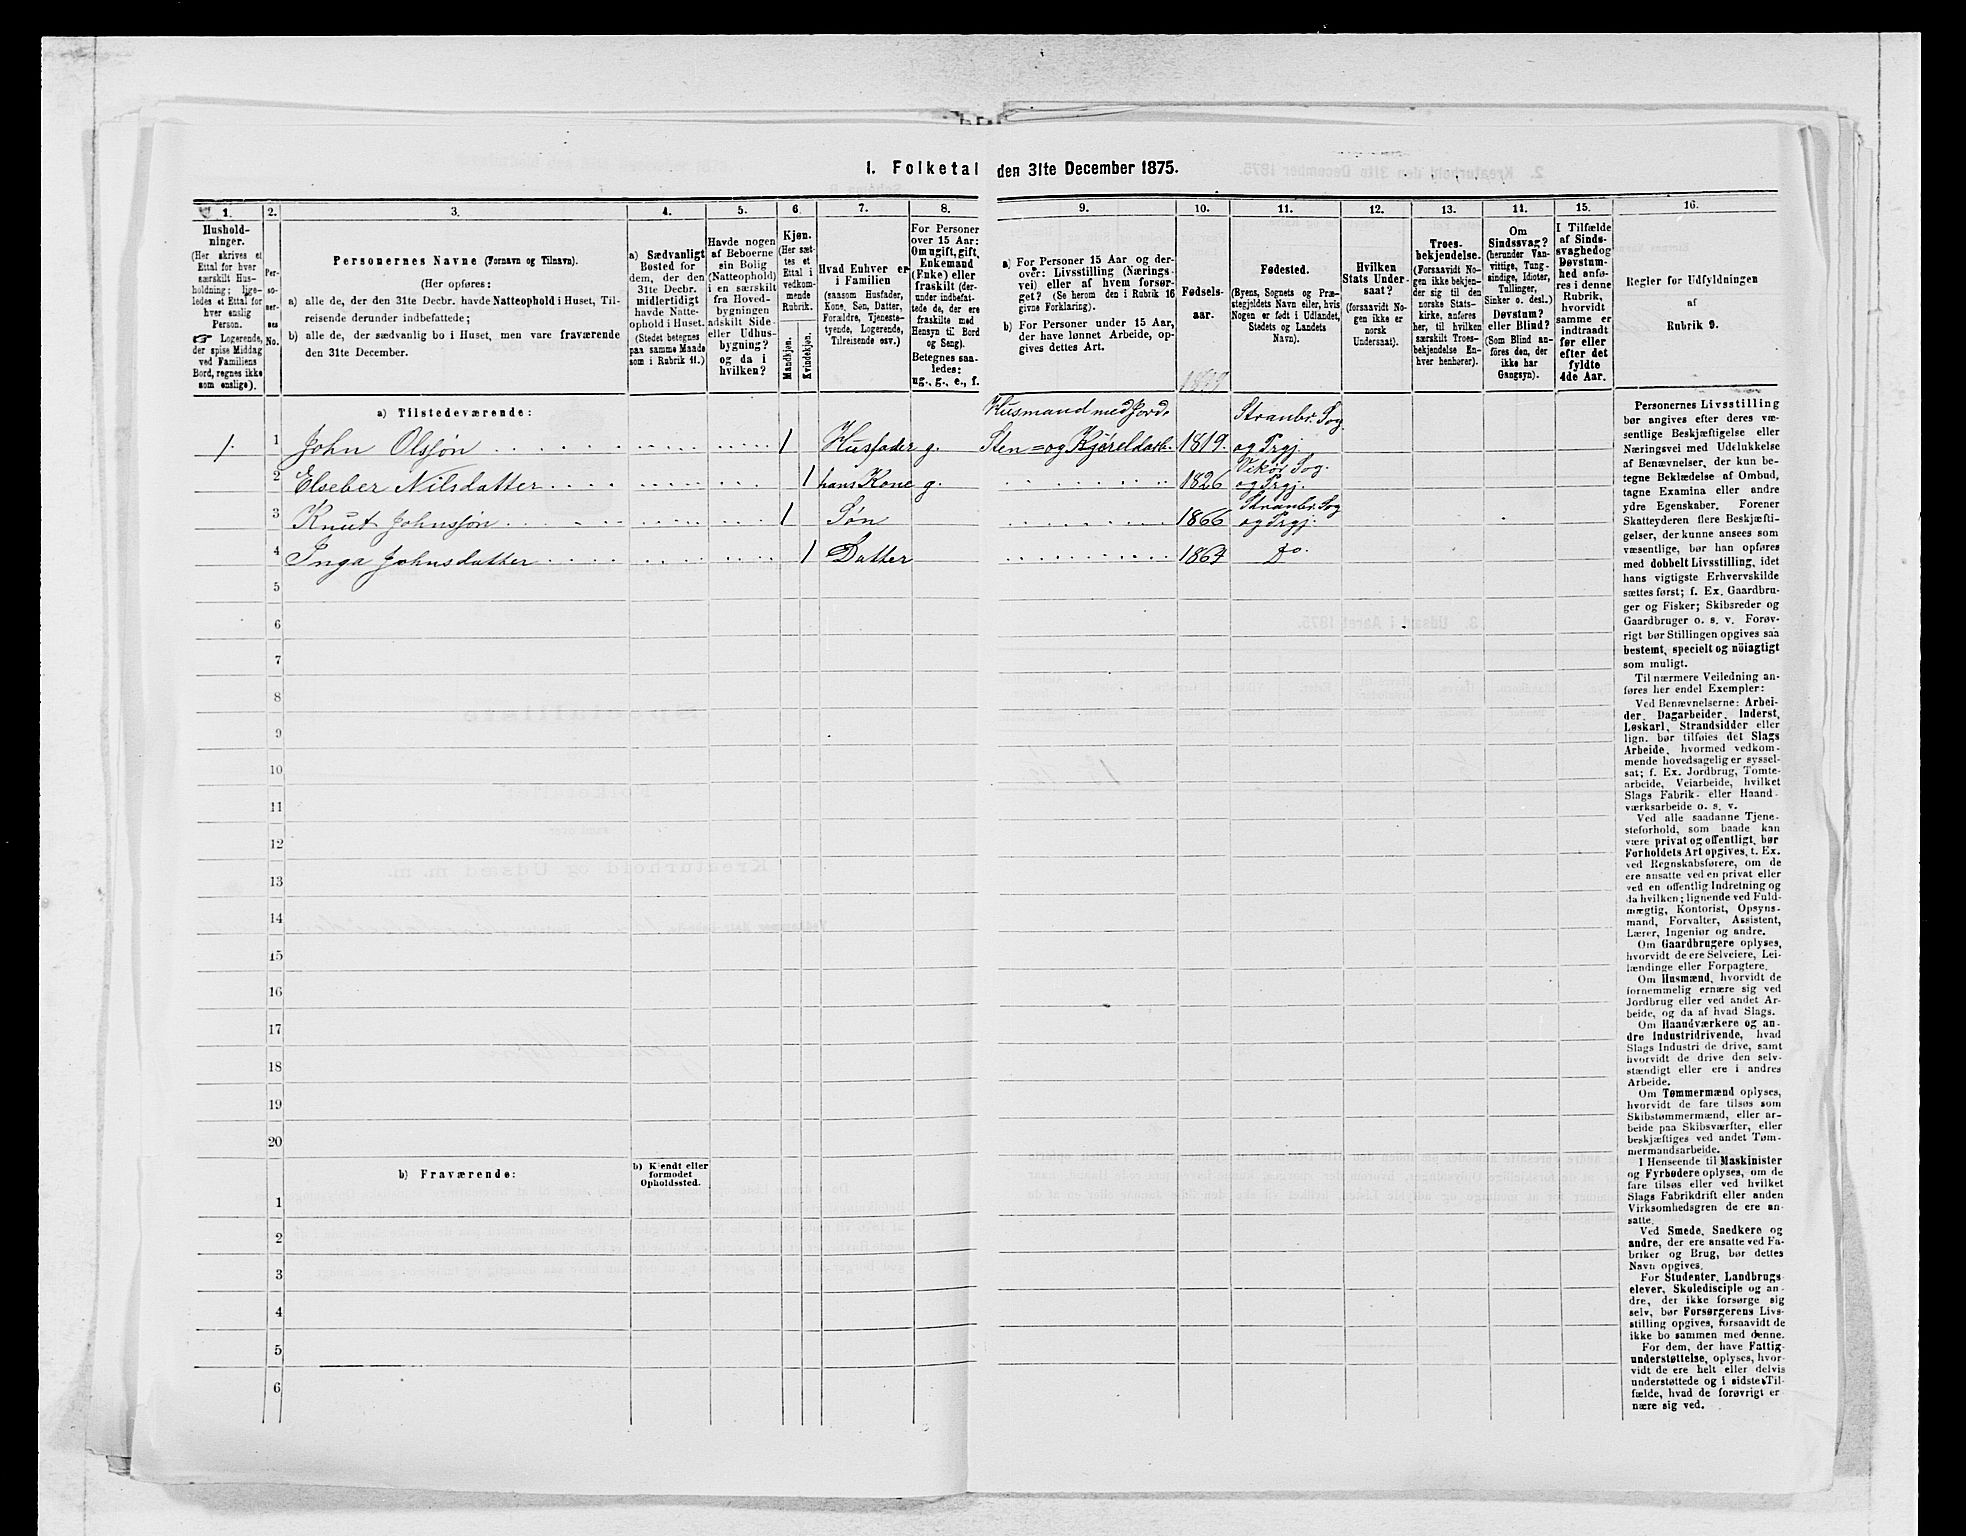 1. Folketal den 31te December 1875.
1.
2.
3.
4.
5.
6.
7.
8.
9.
10.
11.
12.
13.
14.
15.
16.
Hushold-
ninger.
(Her skrives et
Ettal for hver
særskilt Hus-
holdning; lige-
ledes et Ettal for
hver enslig
Person.
☞ Logerende,
der spise Middag
ved Familiens
Bord, regnes ikke
som enslige).
Per-
so-
ner-
nes
No.
Personernes Navne (Fornavn og Tilnavn).
(Her opføres:
a) alle de, der den 31te Decbr. havde Natteophold i Huset, Til-
reisende derunder indbefattede;
b) alle de, der sædvanlig bo i Huset, men vare fraværende
den 31te December.
a) Sædvanligt
Bosted for
dem, der den
31te Decbr.
midlertidigt
havde Natte-
ophold i Huset.
(Stedet betegnes
paa samme Maade
som i Rubrik 11.)
Havde nogen
af Beboerne
sin Bolig
(Natteophold)
i en særskilt
fra Hoved-
bygningen
adskilt Side-
eller Udhus-
bygning?
og da i
hvilken?
Kjøn.
(Her sæt-
tes et
Ettal i
vedkom-
mende
Rubrik.
Mandkjøn.
Kvindekjøn.
Hvad Enhver er
i Familien
(saasom Husfader,
Kone, Søn, Datter,
Forældre, Tjeneste-
tyende, Logerende,
Tilreisende osv.)
For Personer
over 15 Aar:
Om ugift, gift,
Enkemand
(Enke) eller
fraskilt (der-
under indbefat-
tede de, der ere
fraskilte med
Hensyn til Bord
og Seng).
Betegnes saa-
ledes:
ug., g., e., f.
a) For Personer 15 Aar og der-
over: Livsstilling (Nærings-
vei) eller af hvem forsør-
get? (Se herom den i Rubrik 16
givne Forklaring).
b) For Personer under 15 Aar,
der have lønnet Arbeide, op-
gives dettes Art.
Fødsels-
aar.
Fødested.
(Byens, Sognets og Præ-
stegjeldets Navn eller, hvis
Nogen er født i Udlandet,
Stedets og Landets
Navn).
Hvilken
Stats Under-
saat?
(forsaavidt No-
gen ikke er
norsk
Undersaat).
Troes-
bekjendelse.
(Forsaavidt No-
gen ikke bekjen-
der sig til den
norske Stats-
kirke, anføres
her, til hvilken
særskilt Troes-
bekjendelse En-
hver henhører).
Om
Sindssvag?
(herunder Van-
vittige, Tung-
sindige, Idioter,
Tullinger,
Sinker o. desl.)
Døvstum?
eller Blind?
(Som Blind an-
føres den, der
ikke har
Gangsyn).
I Tilfælde
af Sinds-
svaghed og
Døvstum-
hed anfø-
res i denne
Rubrik,
hvorvidt
samme er
indtraadt
før eller
efter det
fyldte
4de Aar.
Regler for Udfyldningen
af
Rubrik 9.
a) Tilstedeværende:
1. 1 John Olssøn 1 Husfader g. Husmand med Jord. Sten= og Kjøreldarb. 1819. Stranbr. Sog og Prgj.
2 Elseber Nilsdatter 1 hans Kone g. 1826 Vikør Sog. og Prgj.
3 Knut Johnssøn 1 Søn 1866 Stranbr. Sog og Prgj.
4 Inga Johnsdatter 1 Datter 1864 Do.
5
6
7
8
9
10
11
12
13
14
15
16
17
18
19
20
b) Fraværende:
b) Kjendt eller
formodet
Opholdssted.
1
2
3
4
5
6
Personernes Livsstilling
bør angives efter deres væ-
sentlige Beskjæftigelse eller
Næringsvei med Udelukkelse
af Benævnelser, der kun be-
tegne Beklædelse af Ombud,
tagne Examina eller andre
ydre Egenskaber. Forener
Skatteyderen flere Beskjæfti-
gelser, der kunne ansees som
væsentlige, bør han opføres
med dobbelt Livsstilling, idet
hans vigtigste Erhvervskilde
sættes først; f. Ex. Gaardbru-
ger og Fisker; Skibsreder og
Gaardbruger o. s. v. Forøv-
rigt bør Stillingen opgives saa
bestemt, specielt og nöiagtigt
som muligt.
Til nærmere Veiledning an-
føres her endel Exempler:
Ved Benævnelserne: Arbei-
der, Dagarbeider, Inderst,
Løskarl, Strandsidder eller
lign. bør tilføies det Slags
Arbeide, hvormed vedkom-
mende hovedsagelig er syssel-
sat; f. Ex. Jordbrug, Tomte-
arbeide, Veiarbeide, hvilket
Slags Fabrik- eller Haand-
værksarbeide o. s. v.
Ved alle saadanne Tjene-
steforhold, som baade kan
være privat og offentligt, bør
Forholdets Art opgives, t. Ex.
ved Regnskabsførere, om de
ere ansatte ved en privat eller
ved en offentlig Indretning og
da hvilken; lignende ved Fuld-
mægtig, Kontorist, Opsyns-
mand, Forvalter, Assistent,
Lærer, Ingeniør og andre.
Om Gaardbrugere oplyses,
hvorvidt de ere Selveiere, Lei-
lændinge eller Forpagtere.
Om Husmænd, hvorvidt de
fornemmelig ernære sig ved
Jordbrug eller ved andet Ar-
beide, og da af hvad Slags.
Om Haandværkere og an-
dre Industridrivende, hvad
Slags Industri de drive, samt
hvorvidt de drive den selv-
stændigt eller ere i andres
Arbeide.
Om Tømmermænd oplyses,
hvorvidt de fare tilsøs som
Skibstømmermænd, eller ar-
beide paa Skibsværfter, eller
beskjæftiges ved andet Tøm-
mermandsarbeide.
I Henseende til Maskinister
og Fyrbødere oplyses, om de
fare tilsøs eller ved hvilket
Slags Fabrikdrift eller anden
Virksomhedsgren de ere an-
satte.
Ved Smede, Snedkere og
andre, der ere ansatte ved Fa-
briker og Brug, bør dettes
Navn opgives.
For Studenter, Landbrugs-
elever, Skoledisciple og an-
dre, der ikke forsørge sig
selv, bør Forsørgerens Livs-
stilling opgives, forsaavidt de
ikke bo sammen med denne.
For dem, der have Fattig-
understøttelse, oplyses, hvor-
vidt de ere helt eller delvis
understøttede og i sidste Til-
fælde, hvad de forøvrigt er-
nære sig ved.